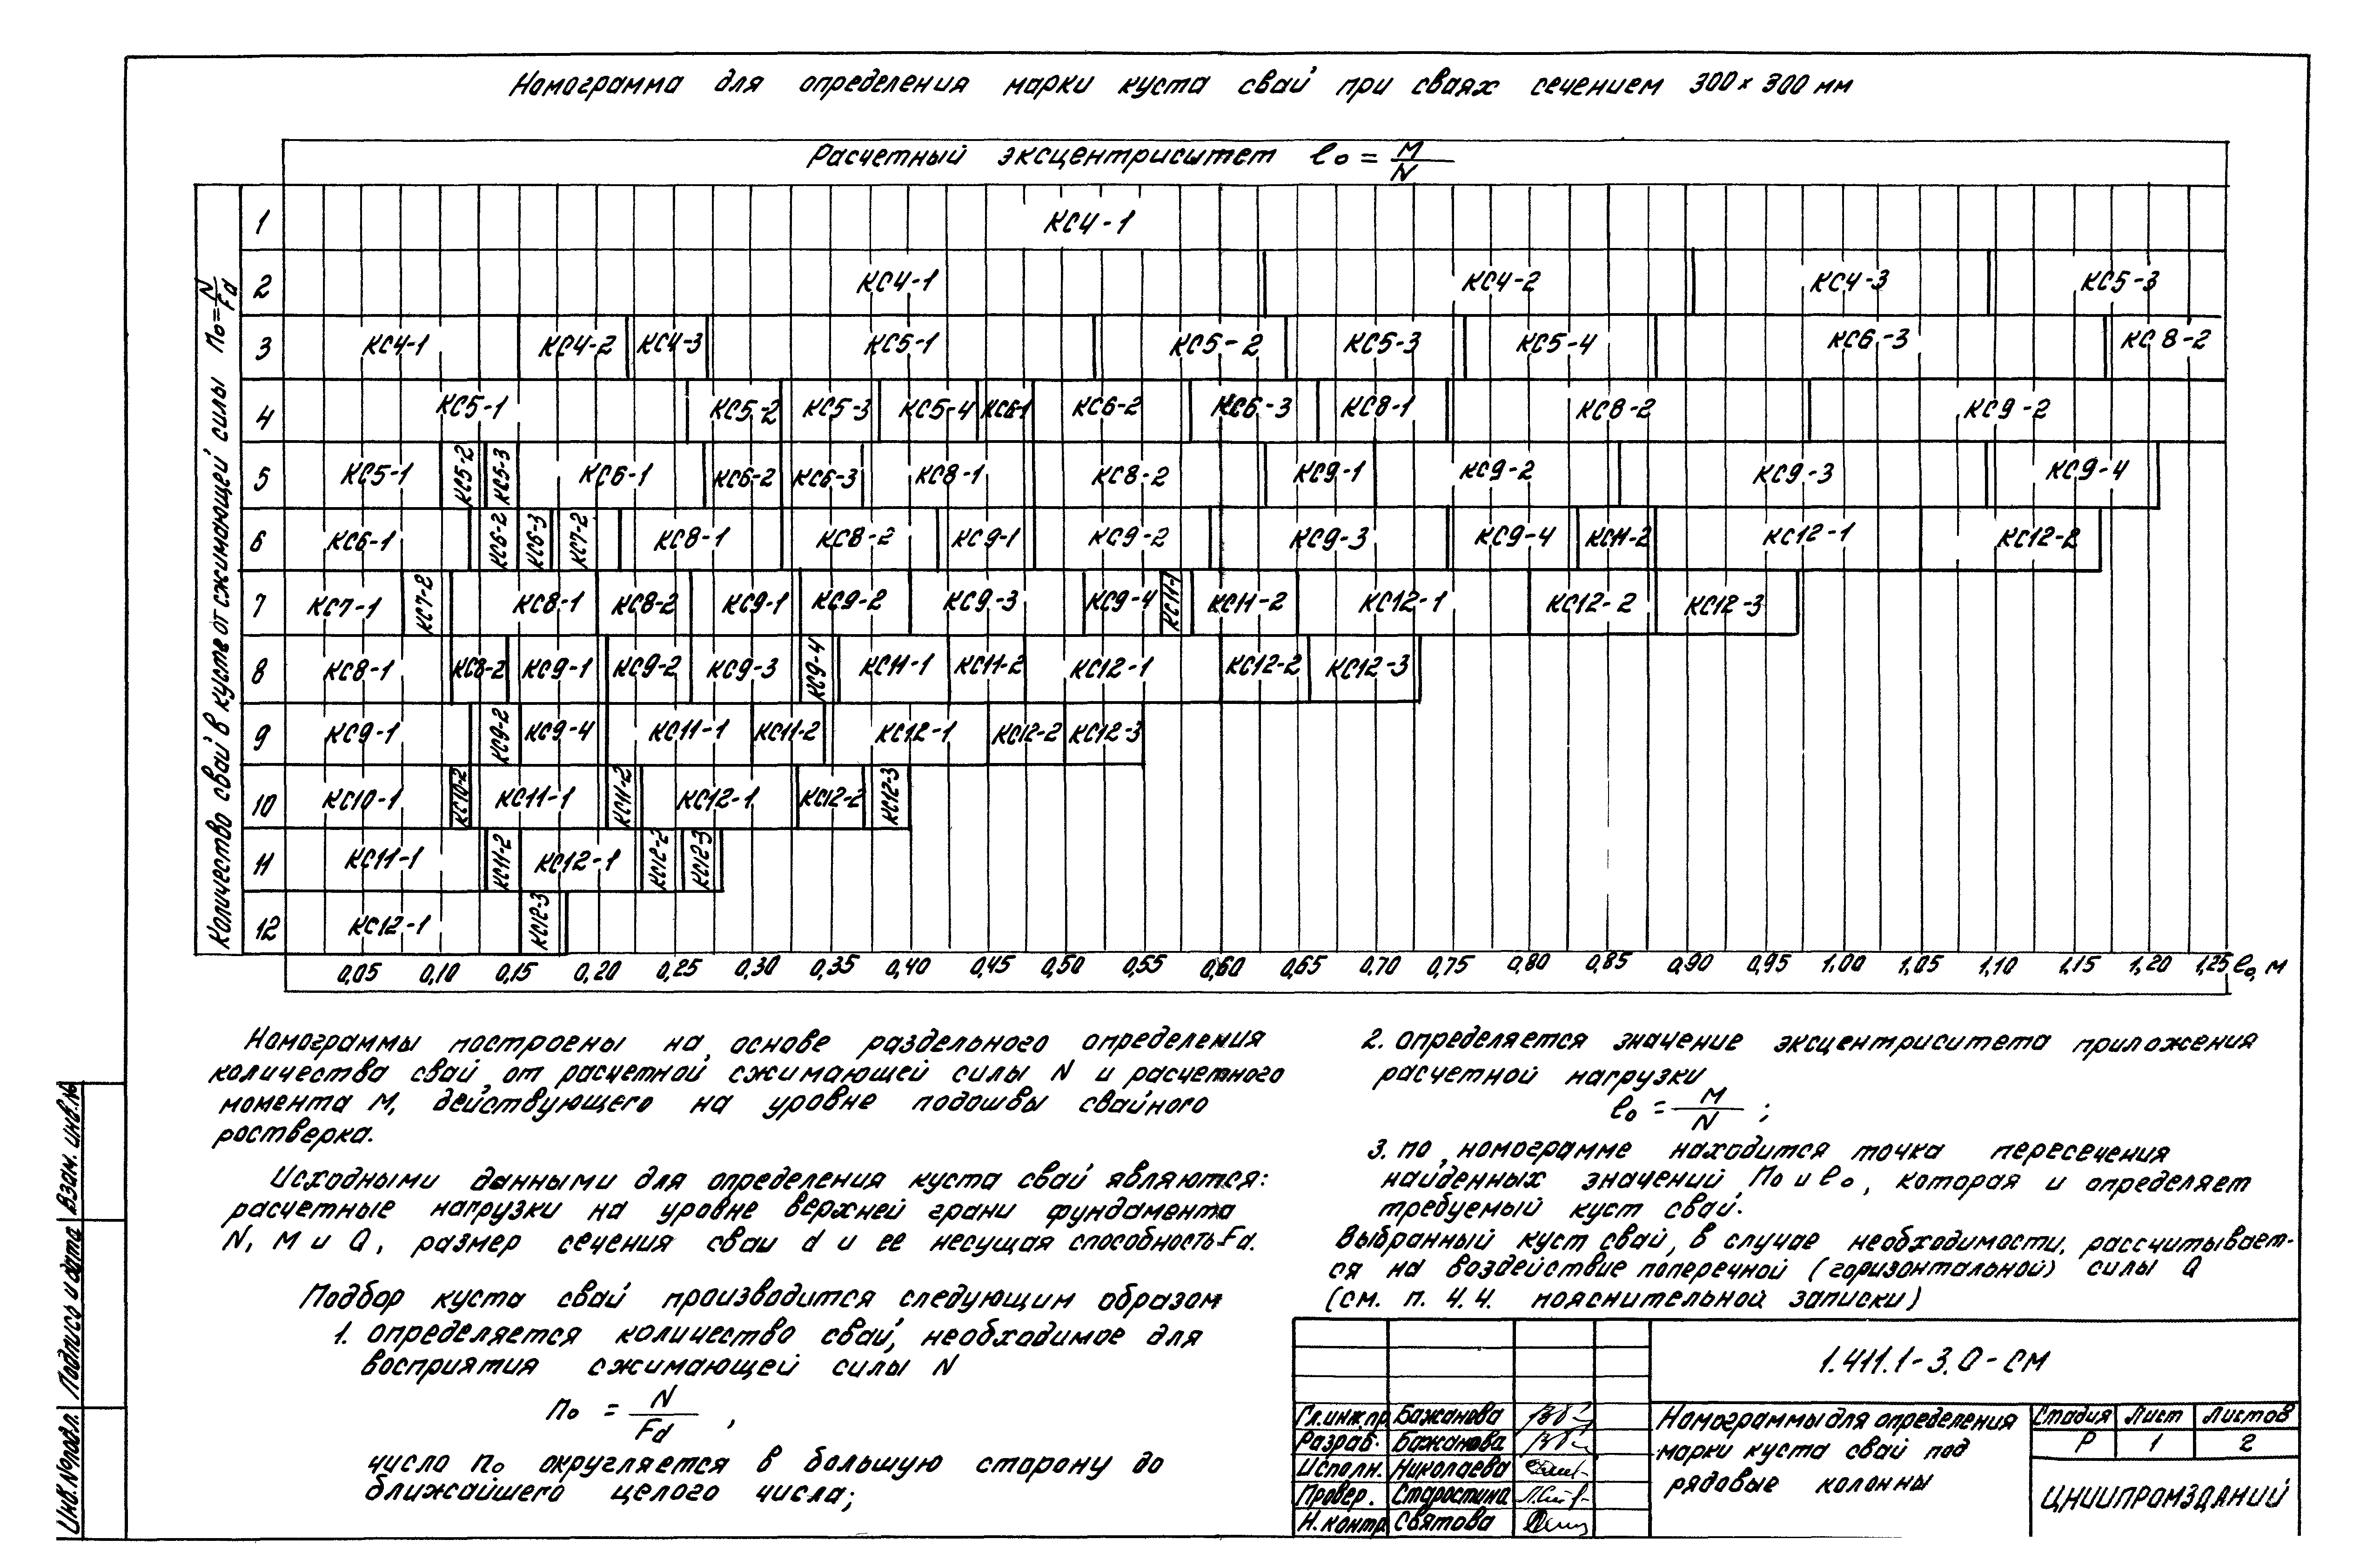 Номограмма для определения марки куста свай при сваях сечением 300×300 мм
Расчетный эксцентриситет e₀ = M/N
Количество свай в кусте от сжимающей силы n₀ = N/Fd
1 КС4-1
2 КС4-1 КС4-2 КС4-3 КС5-3
3 КС4-1 КС4-2 КС4-3 КС5-1 КС5-2 КС5-3 КС5-4 КС6-3 КС8-2
4 КС5-1 КС5-2 КС5-3 КС5-4 КС6-1 КС6-2 КС6-3 КС8-1 КС8-2 КС9-2
5 КС5-1 КС5-2 КС5-3 КС6-1 КС6-2 КС6-3 КС8-1 КС8-2 КС9-1 КС9-2 КС9-3 КС9-4
6 КС6-1 КС6-2 КС6-3 КС7-2 КС8-1 КС8-2 КС9-1 КС9-2 КС9-3 КС9-4 КС11-2 КС12-1 КС12-2
7 КС7-1 КС7-2 КС8-1 КС8-2 КС9-1 КС9-2 КС9-3 КС9-4 КС11-1 КС11-2 КС12-1 КС12-2 КС12-3
8 КС8-1 КС8-2 КС9-1 КС9-2 КС9-3 КС9-4 КС11-1 КС11-2 КС12-1 КС12-2 КС12-3
9 КС9-1 КС9-2 КС9-4 КС11-1 КС11-2 КС12-1 КС12-2 КС12-3
10 КС10-1 КС10-2 КС11-1 КС11-2 КС12-1 КС12-2 КС12-3
11 КС11-1 КС11-2 КС12-1 КС12-2 КС12-3
12 КС12-1 КС12-3
0,05 0,10 0,15 0,20 0,25 0,30 0,35 0,40 0,45 0,50 0,55 0,60 0,65 0,70 0,75 0,80 0,85 0,90 0,95 1,00 1,05 1,10 1,15 1,20 1,25 e₀, м
Номограммы построены на основе раздельного определения
количества свай от расчетной сжимающей силы N и расчетного
момента М, действующего на уровне подошвы свайного
ростверка.
Исходными данными для определения куста свай являются:
расчетные нагрузки на уровне верхней грани фундамента
N, М и Q, размер сечения сваи d и ее несущая способность Fd.
Подбор куста свай производится следующим образом
1. определяется количество свай, необходимое для
восприятия сжимающей силы N
n₀ = N/Fd ,
число n₀ округляется в большую сторону до
ближайшего целого числа;
2. определяется значение эксцентриситета приложения
расчетной нагрузки
e₀ = M/N ;
3. по номограмме находится точка пересечения
найденных значений n₀ и e₀, которая и определяет
требуемый куст свай.
Выбранный куст свай, в случае необходимости, рассчитывает-
ся на воздействие поперечной (горизонтальной) силы Q
(см. п. 4.4. пояснительной записки)
1.411.1-3.0-СМ
Гл.инж.пр Бажанова
Разраб. Бажанова
Исполн. Николаева
Провер. Старостина
Н.контр. Святова
Номограммы для определения
марки куста свай под
рядовые колонны
Стадия Лист Листов
Р 1 2
ЦНИИПРОМЗДАНИЙ
Инв.№подл. Подпись и дата Взам. инв.№